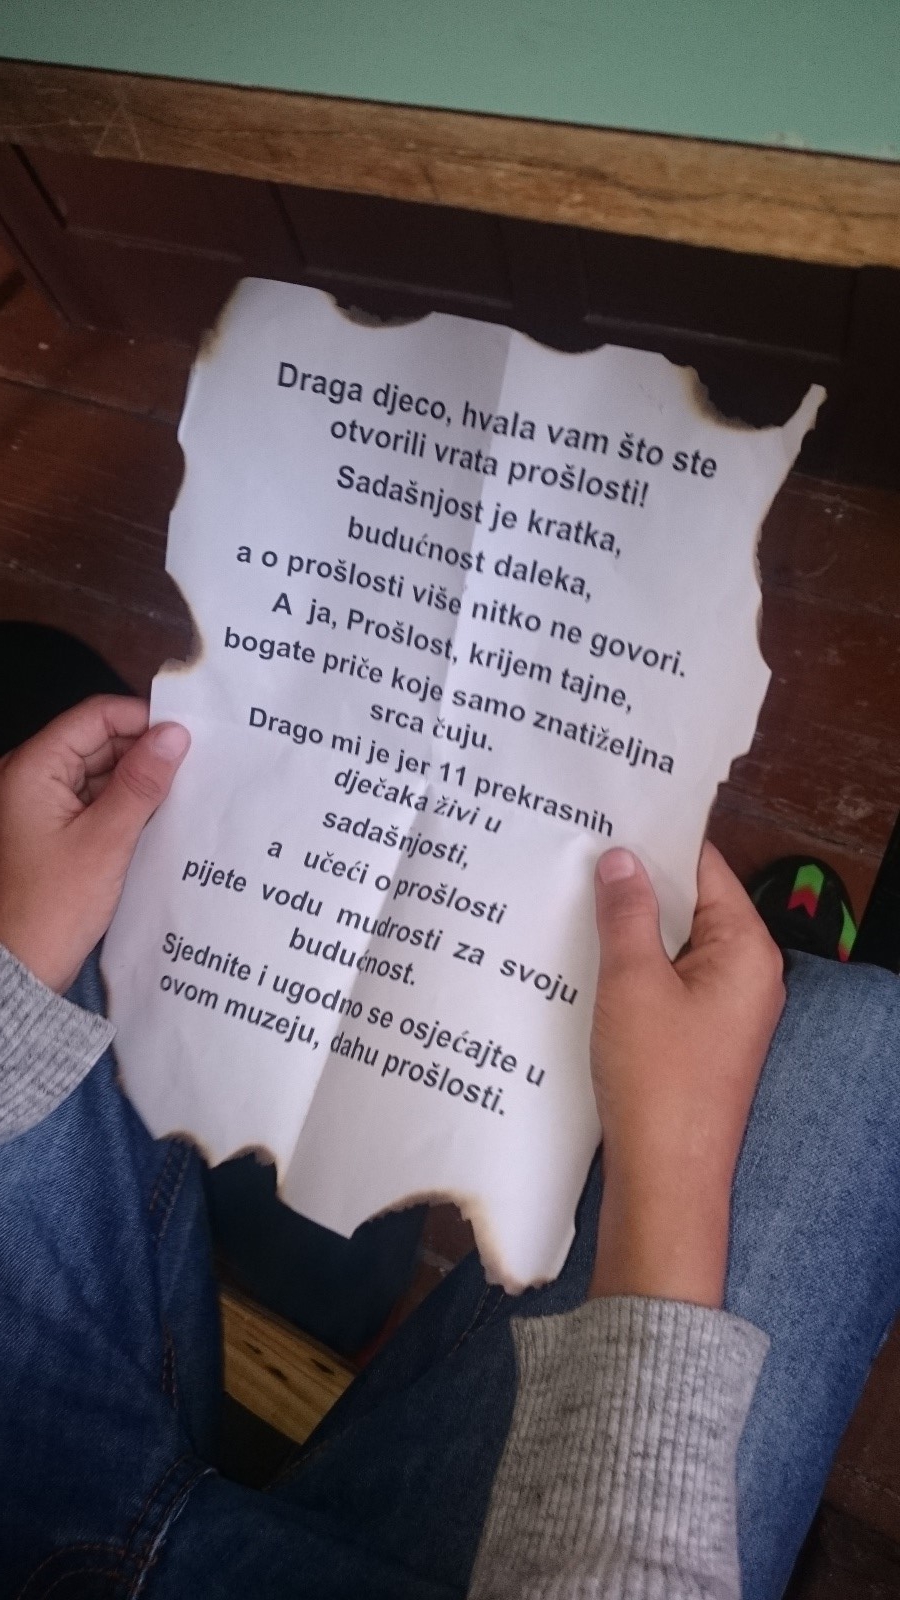 Draga djeco, hvala vam što ste
otvorili vrata prošlosti!
Sadašnjost je kratka,
budućnost daleka,
a o prošlosti više nitko ne govori.
A ja, Prošlost, krijem tajne,
bogate priče koje samo znatiželjna
srca čuju.
Drago mi je jer 11 prekrasnih
dječaka živi u
sadašnjosti,
a učeći o prošlosti
pijete vodu mudrosti za svoju
budućnost.
Sjednite i ugodno se osjećajte u
ovom muzeju, dahu prošlosti.